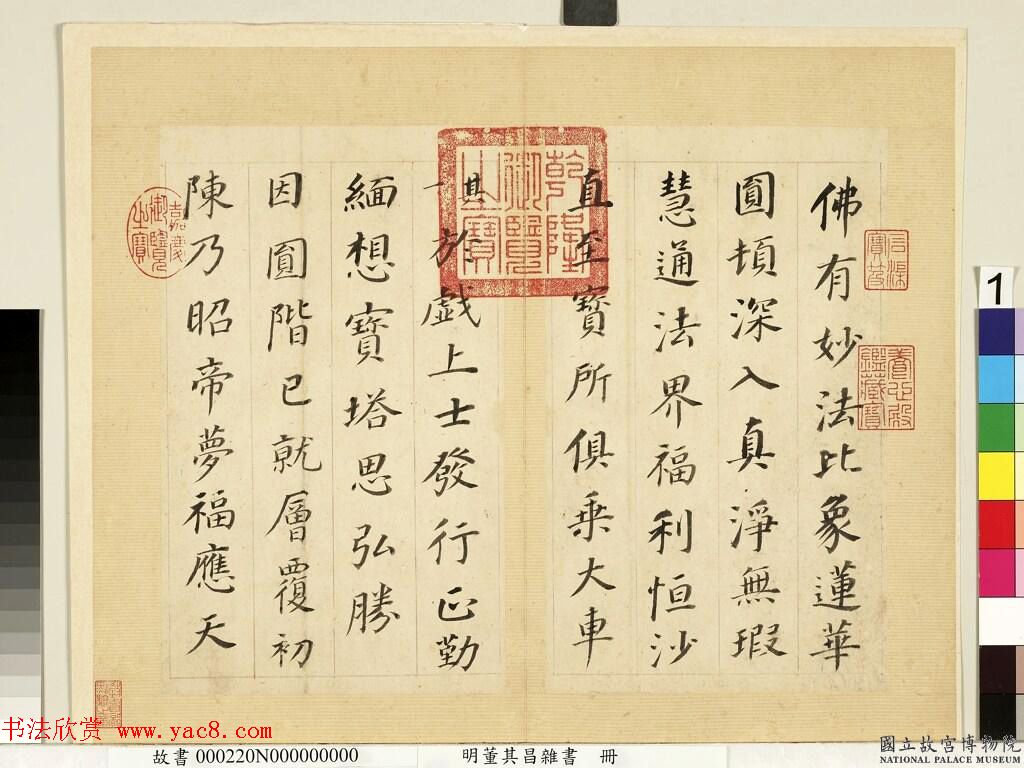 佛有妙法比象蓮華
圓頓深入真淨無瑕
慧通法界福利恒沙
直至寶所俱乘大車
其一於戲上士發行正勤
緬想寶塔思弘勝
因圓階已就層覆初
陳乃昭帝夢福應天
石渠寶笈
養心殿鑑藏寶
乾隆御覽之寶
嘉慶御覽之寶
1
书法欣赏 www.yac8.com
故書 000220N000000000 明董其昌雜書 冊
國立故宮博物院
NATIONAL PALACE MUSEUM